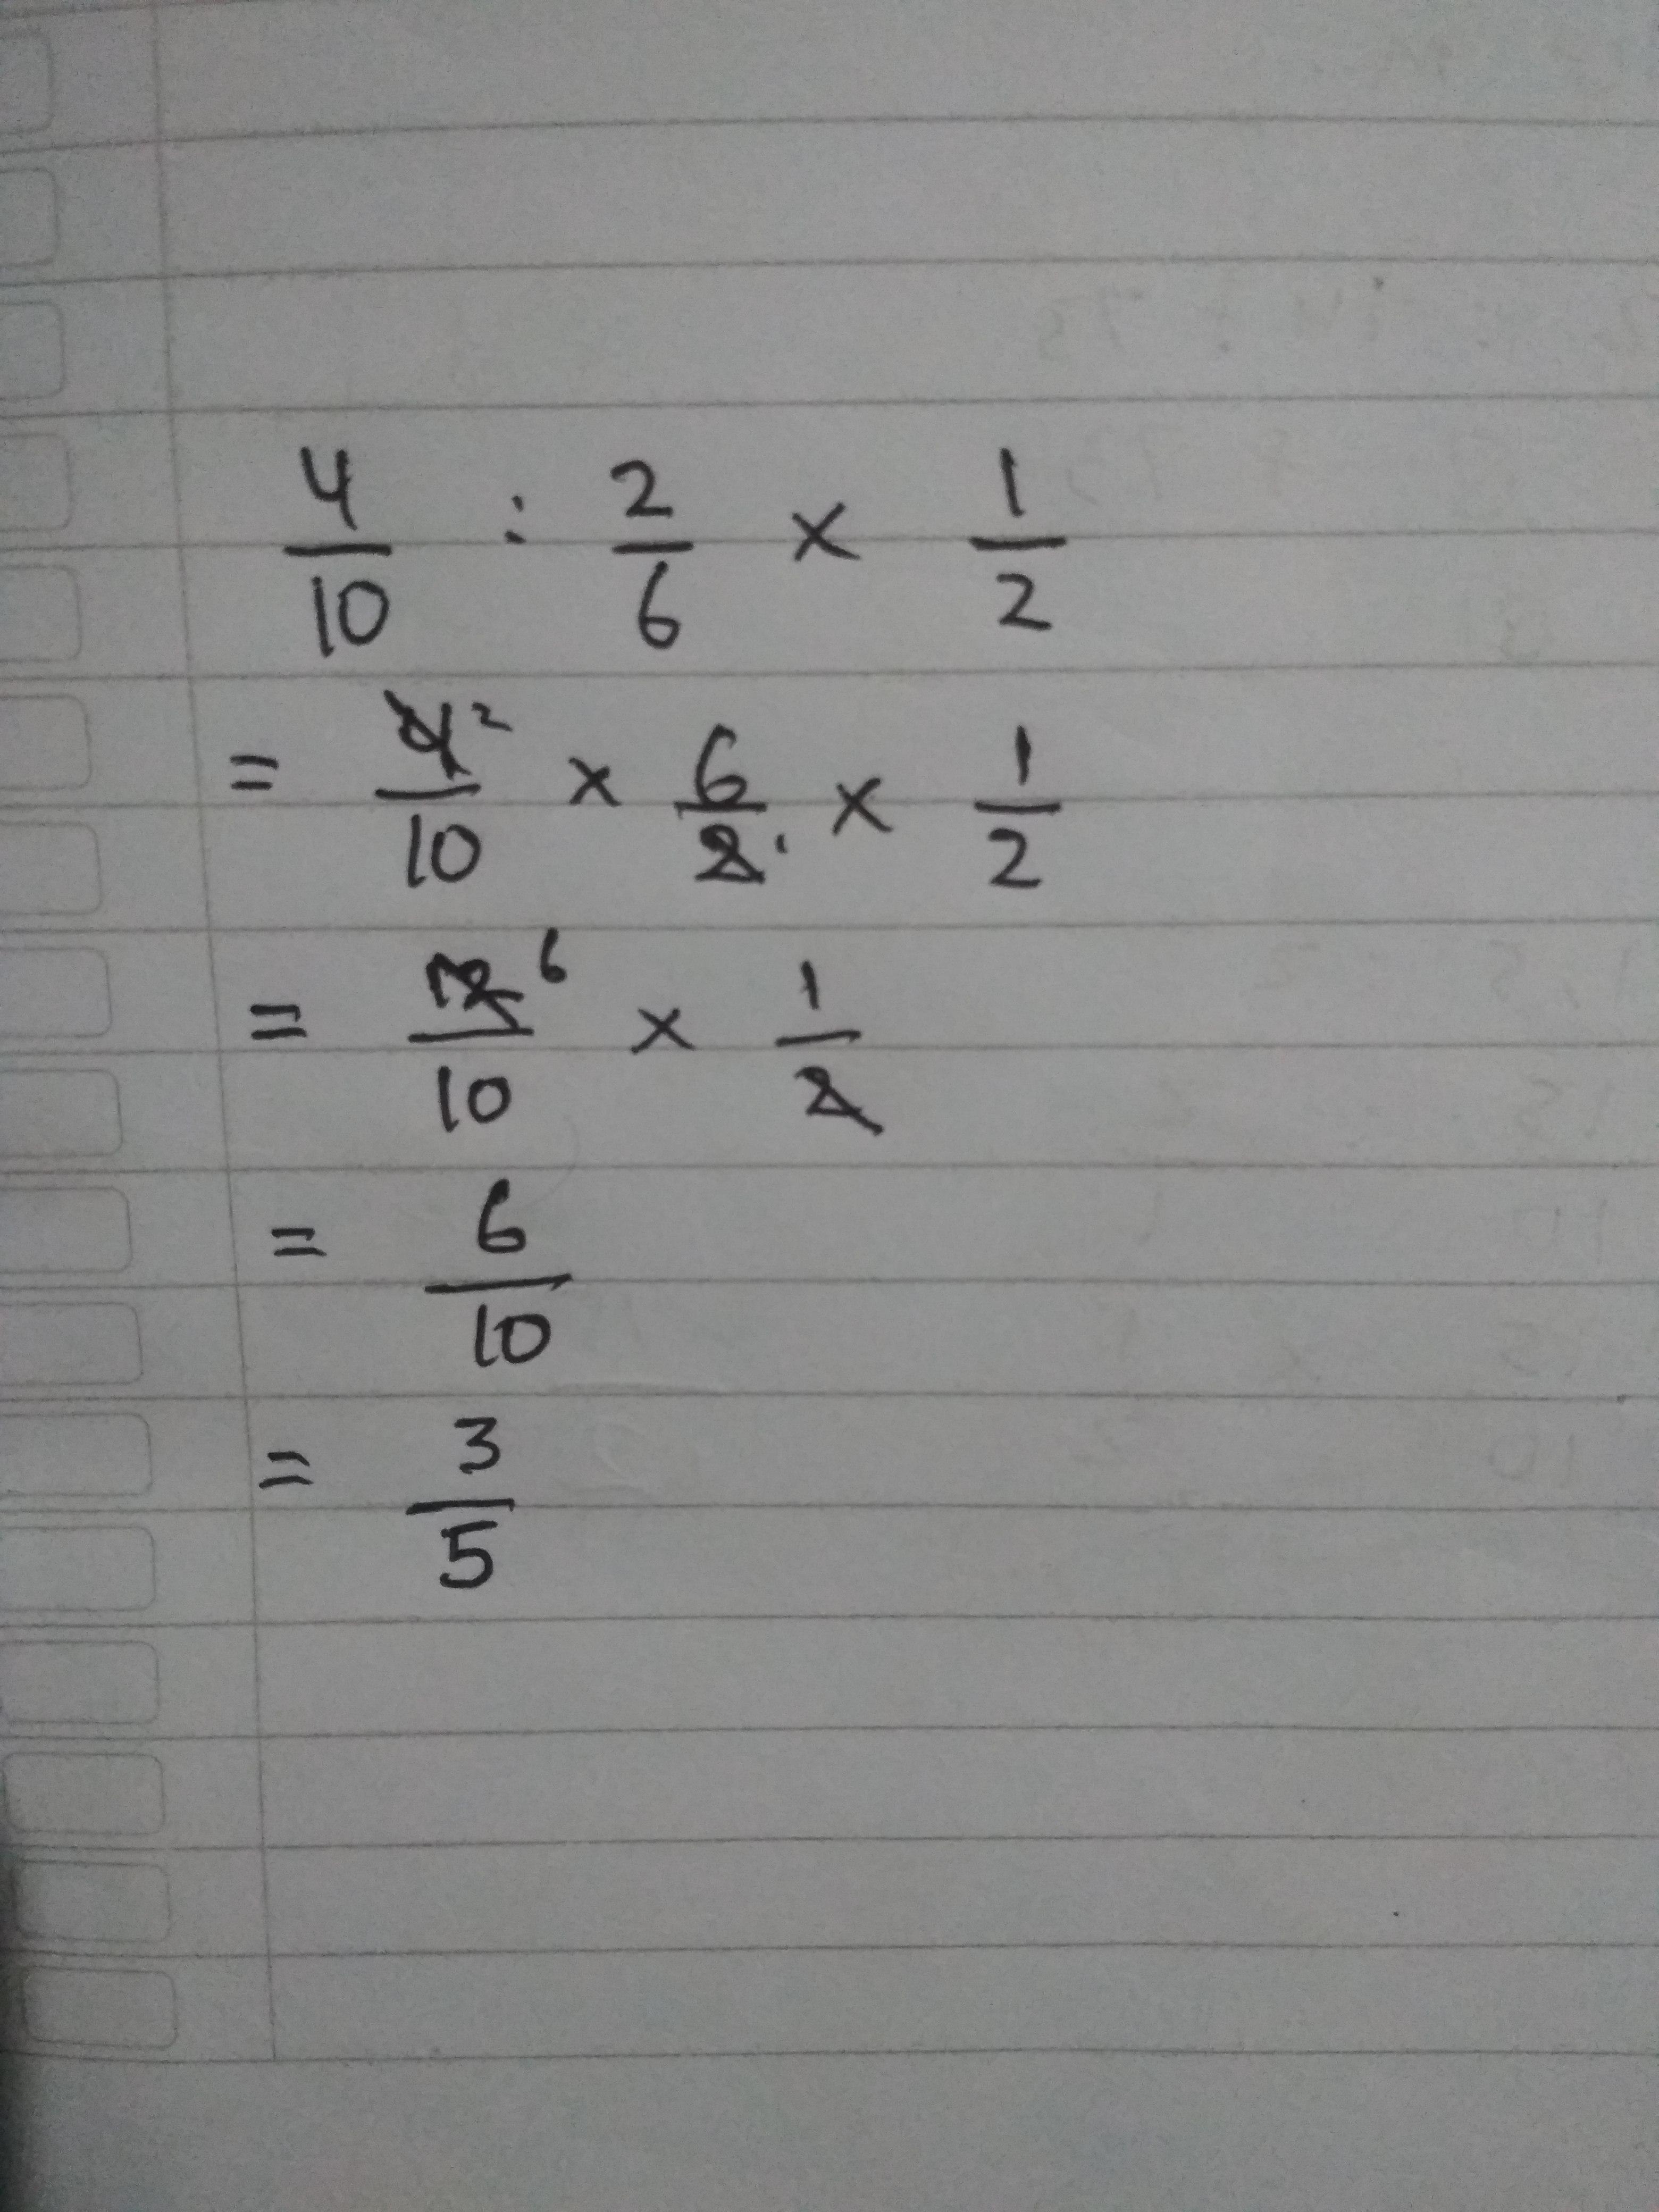 4/10 : 2/6 × 1/2
= 4²/10 × 6/2₁ × 1/2
= 12⁶/10 × 1/2
= 6/10
= 3/5